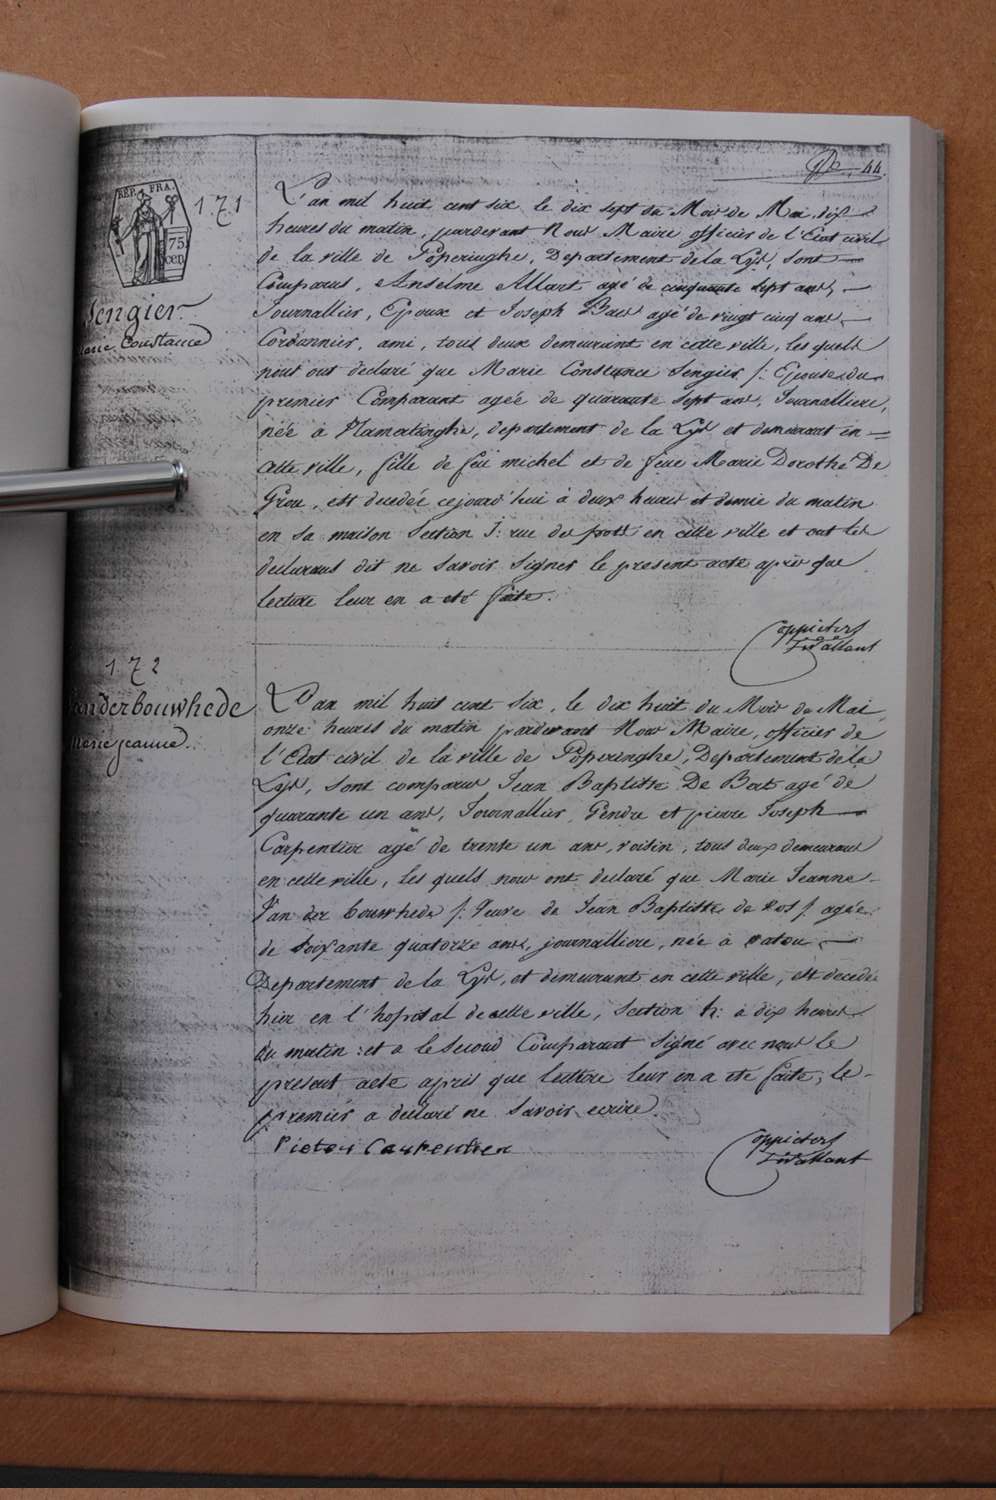 44.
RÉP. FRA.
75
cen
171
Sengier
Marie Constance
L'an mil huit cent six le dix sept du Mois de Mai, dix
heures du matin, pardevant Nous Maire officier de l'Etat civil
de la ville de Poperinghe, Departement de la Lys, sont
Comparus, Anselme Allart agé de cinquante sept ans,
Journallier, Epoux et Joseph Baes agé de vingt cinq ans,
Cordonnier, ami, tous deux demeurant en cette ville, les quels
nous ont declaré que Marie Constance Sengier /: Epouse du
premier Comparant agée de quarante sept ans, Journalliere,
née à Mamertinghe, departement de la Lys et demeurant en
cette ville, fille de feu michel et de feue Marie Dorothé De
Grou, est decedée cejourd'hui à deux heures et demie du matin
en sa maison Section J: rue des pots en cette ville et ont les
declarans dit ne savoir signer le present acte après que
lecture leur en a eté faite.
Coppieters
T'Wallant
172
Vanderbouwhede
Marie jeanne.
L'an mil huit cent six, le dix huit du Mois de Mai,
onze heures du matin pardevant Nous Maire, officier de
l'Etat civil de la ville de Poperinghe, Departement de la
Lys, sont comparus Jean Baptiste De Bert agé de
quarante un ans, Journallier, Gendre et pierre Joseph
Carpentier agé de trente un ans, voisin, tous deux demeurant
en cette ville, les quels nous ont declaré que Marie Jeanne
Van der bouwhede /: Veuve de Jean Baptiste de Vos /. agée
de soixante quatorze ans, journalliere, née à watou,
Departement de la Lys, et demeurant en cette ville, est decedée
hier en l'hopital de cette ville, Section h: à dix heures
du matin: et a le Second Comparant Signé avec nous le
present acte après que lecture leur en a eté faite, le
premier a declaré ne savoir ecrire.
Pieter Carpentier
Coppieters
T'Wallant